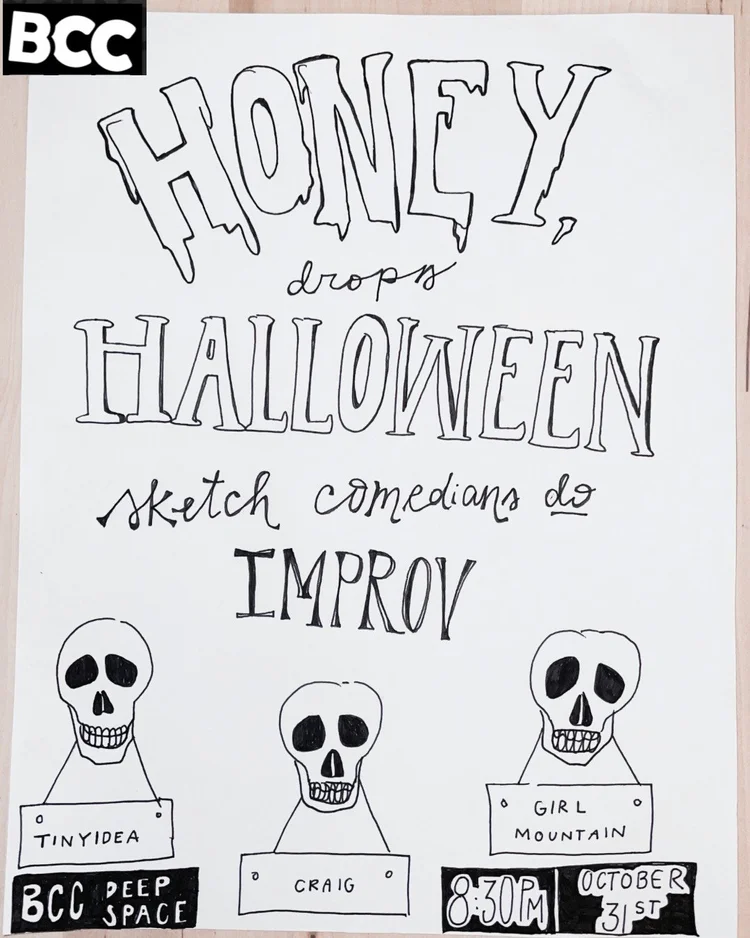 BCC
HONEY,
drops
HALLOWEEN
sketch comedians do
IMPROV
TINYIDEA
CRAIG
GIRL
MOUNTAIN
BCC DEEP
SPACE
8:30PM
OCTOBER
31ST